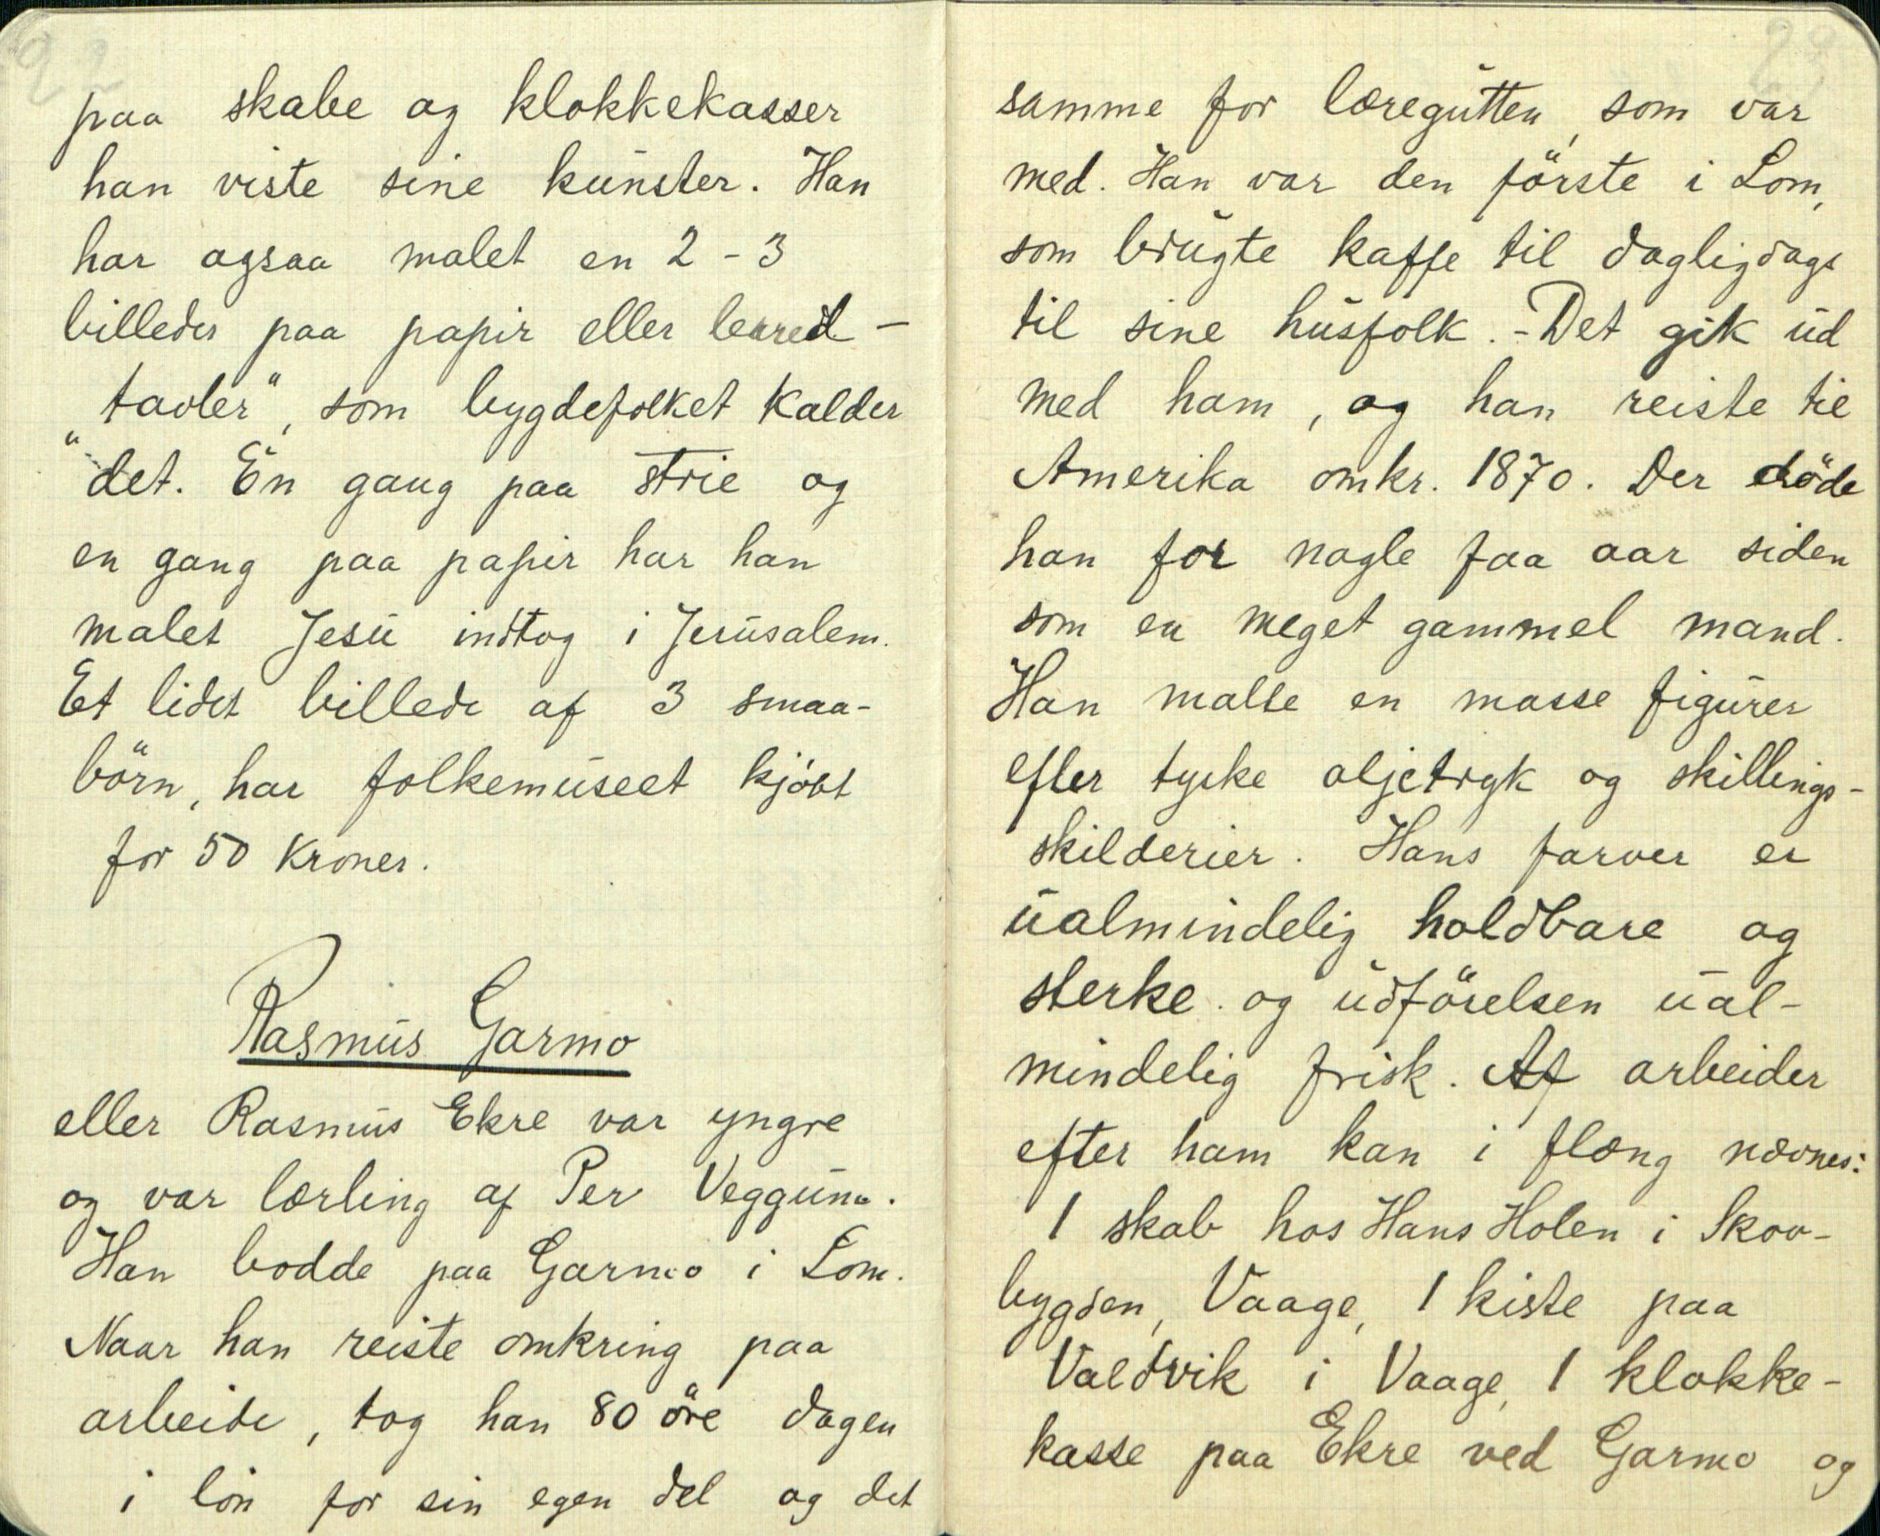 22
paa skabe og klokkekasser
han viste sine kunster. Han
har ogsaa malet en 2-3
billeder paa papir eller lerred –
"tavler", som bygdefolket kalder
det. En gang paa strie og
en gang paa papir har han
malet Jesu indtog i Jerusalem.
Et lidet billede af 3 smaa-
börn, har folkemuseet kjöbt
for 50 kroner.
Rasmus Garmo
eller Rasmus Ekre var yngre
og var lærling af Per Veggum.
Han bodde paa Garmo i Lom.
Naar han reiste omkring paa
arbeide, tog han 80 öre dagen
i lön for sin egen del og det
23
samme for læregutten, som var
med. Han var den förste i Lom,
som brugte kaffe til dagligdags
til sine husfolk. - Det gik ud
med ham, og han reiste til
Amerika omkr. 1870. Der döde
han for nogle faa aar siden
som en meget gammel mand.
Han malte en masse figurer
efter tyske oljetryk og skillings-
skilderier. Hans farver er
ualmindelig holdbare og
sterke og udförelsen ual-
mindelig frisk. Af arbeider
efter ham kan i flæng nævnes:
1 skab hos Hans Holen i Skov-
bygden, Vaage, 1 kiste paa
Valdvik i Vaage, 1 klokke-
kasse paa Ekre ved Garmo og